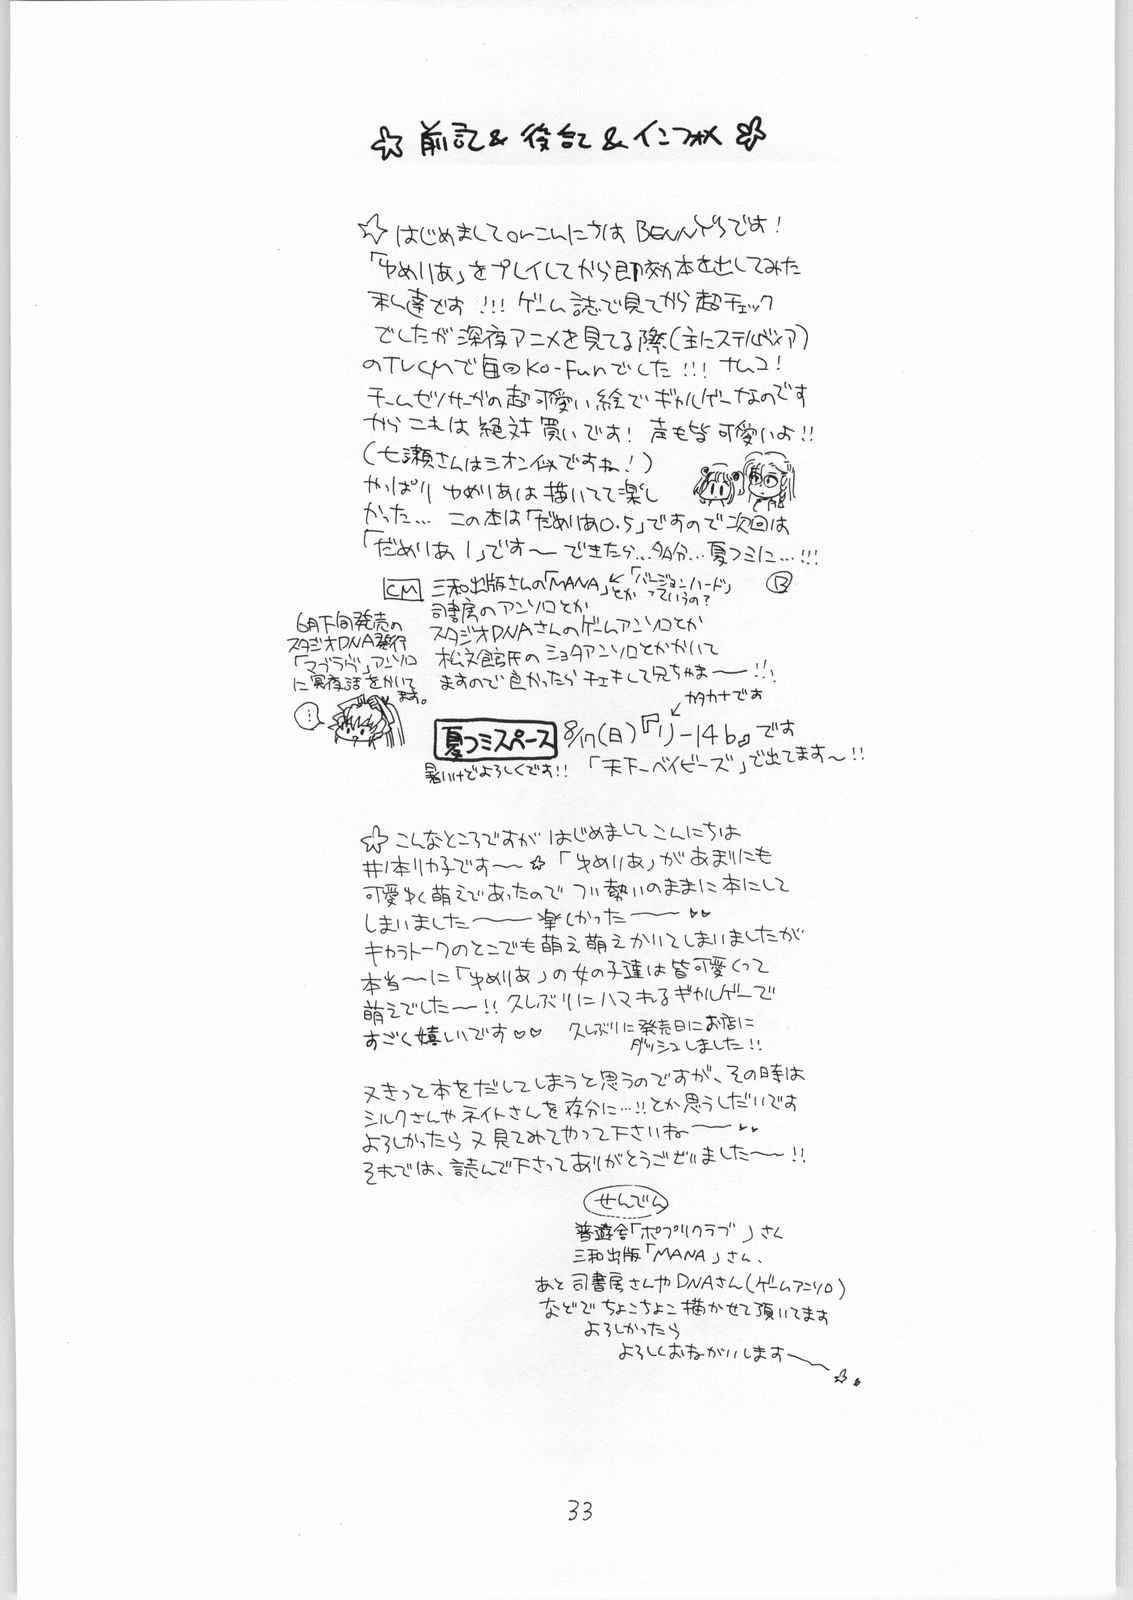 ☆前記&後記&インフォメ☆
☆はじめましてorこんにちは BENNY'Sです!
「ゆめりあ」をプレイしてから即効本を出してみた
私達です!!! ゲーム誌で見てから超チェック
でしたが深夜アニメを見てる際(主にステルヴィア)
のTVCMで毎回Ko-Funでした!!! ナムコ!
チームゼノサーガの超可愛い絵でギャルゲーなのです
からこれは絶対買いです! 声も皆可愛いよ!!
(七瀬さんはシオン似ですね!)
やっぱりゆめりあは描いてて楽し
かった… この本は「だめりあ0.5」ですので次回は
「だめりあ1」です〜 できたら…多分…夏コミに…!!!
CM 三和出版さんの「MANA」とか ←「バージョンハード」っていうの? B
司書房のアンソロとか
スタジオDNAさんのゲームアンソロとか
松文館氏のショタアンソロとかかいて
ますので良かったらチェキして兄ちゃま〜!!!
6月下旬発売の
スタジオDNA発行
「マブラヴ」アンソロ
に冥夜話をかいて
ます。
…
カタカナです
夏コミスペース 8/17(日)『リ-14b』です
暑いけどよろしくです!! 「天下一ベイビーズ」で出てます〜!!
☆こんなところですが はじめましてこんにちは
井ノ本リカ子です〜☆ 「ゆめりあ」があまりにも
可愛く萌えであったので つい勢いのままに本にして
しまいました〜 楽しかった〜♥♥
キャラトークのとこでも萌え萌えかいてしまいましたが
本当〜に「ゆめりあ」の女の子達は皆可愛くって
萌えでした〜!! 久しぶりにハマれるギャルゲーで
すごく嬉しいです♡♡ 久しぶりに発売日にお店に
ダッシュしました!!
又きって本をだしてしまうと思うのですが、その時は
シルクさんやネイトさんを存分に…!!とか思うしだいです
よろしかったら又見てみてやって下さいね〜♥♥
それでは、読んで下さってありがとうございました〜!!
せんでん
普遊舎「ポプリクラブ」さん
三和出版「MANA」さん、
あと司書房さんやDNAさん(ゲームアンソロ)
などでちょこちょこ描かせて頂いてます
よろしかったら
よろしくおねがいします〜☆
33